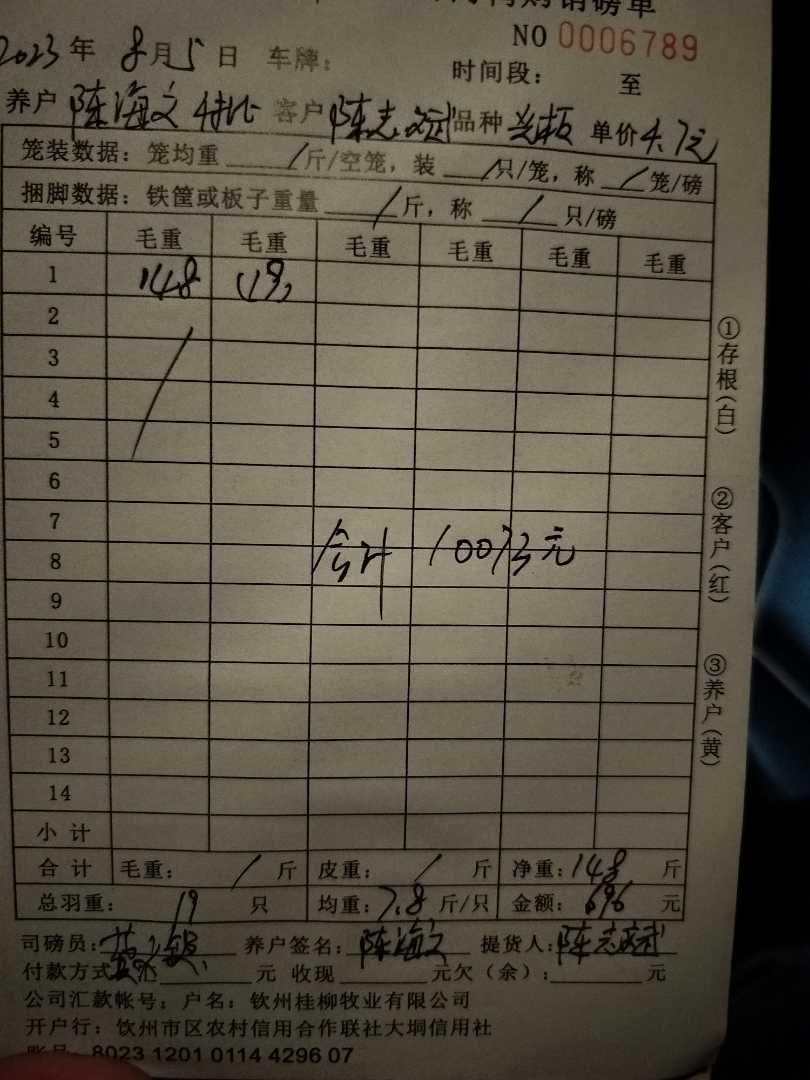 购销磅单
NO 0006789
2023年 8月5日 车牌:
时间段: 至
养户 陈海文 客户 陈志斌 品种 单价 4.7元
笼装数据: 笼均重 / 斤/空笼, 装 / 只/笼, 称 / 笼/磅
捆脚数据: 铁筐或板子重量 / 斤, 称 / 只/磅
编号 毛重 毛重 毛重 毛重 毛重 毛重
1 148 19
2
3
4
5
6
7
合计 10073元
8
9
10
11
12
13
14
小计
合计 毛重: / 斤 皮重: / 斤 净重: 148 斤
总羽重: 19 只 均重: 7.8 斤/只 金额: 696 元
司磅员: 养户签名: 陈海文 提货人: 陈志斌
付款方式 元 收现 元欠(余): 元
公司汇款帐号: 户名: 钦州桂柳牧业有限公司
开户行: 钦州市区农村信用合作联社大垌信用社
账号: 8023 1201 0114 4296 07
①存根(白)
②客户(红)
③养户(黄)